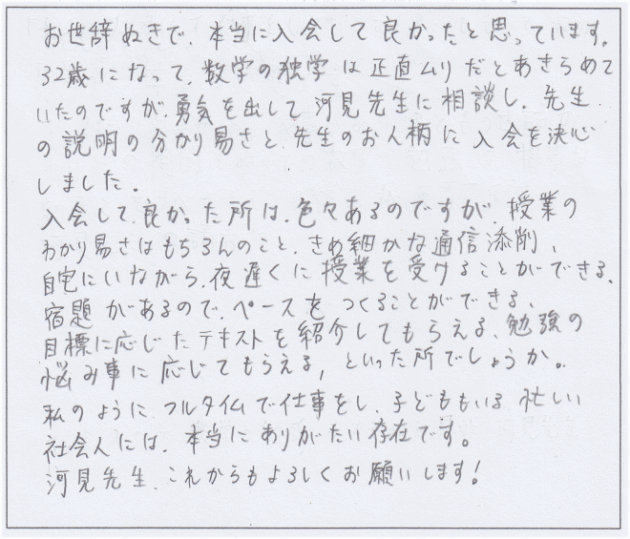 お世辞ぬきで、本当に入会して良かったと思っています。
32歳になって、数学の独学は正直ムリだとあきらめて
いたのですが、勇気を出して河見先生に相談し、先生
の説明の分かり易さと、先生のお人柄に入会を決心
しました。
入会して、良かった所は、色々あるのですが、授業の
わかり易さはもちろんのこと、きめ細かな通信添削、
自宅にいながら、夜遅くに授業を受けることができる、
宿題があるので、ペースをつくることができる、
目標に応じたテキストを紹介してもらえる、勉強の
悩み事に応じてもらえる, といった所でしょうか。
私のように、フルタイムで仕事をし、子どももいる忙しい
社会人には、本当にありがたい存在です。
河見先生、これからもよろしくお願いします!